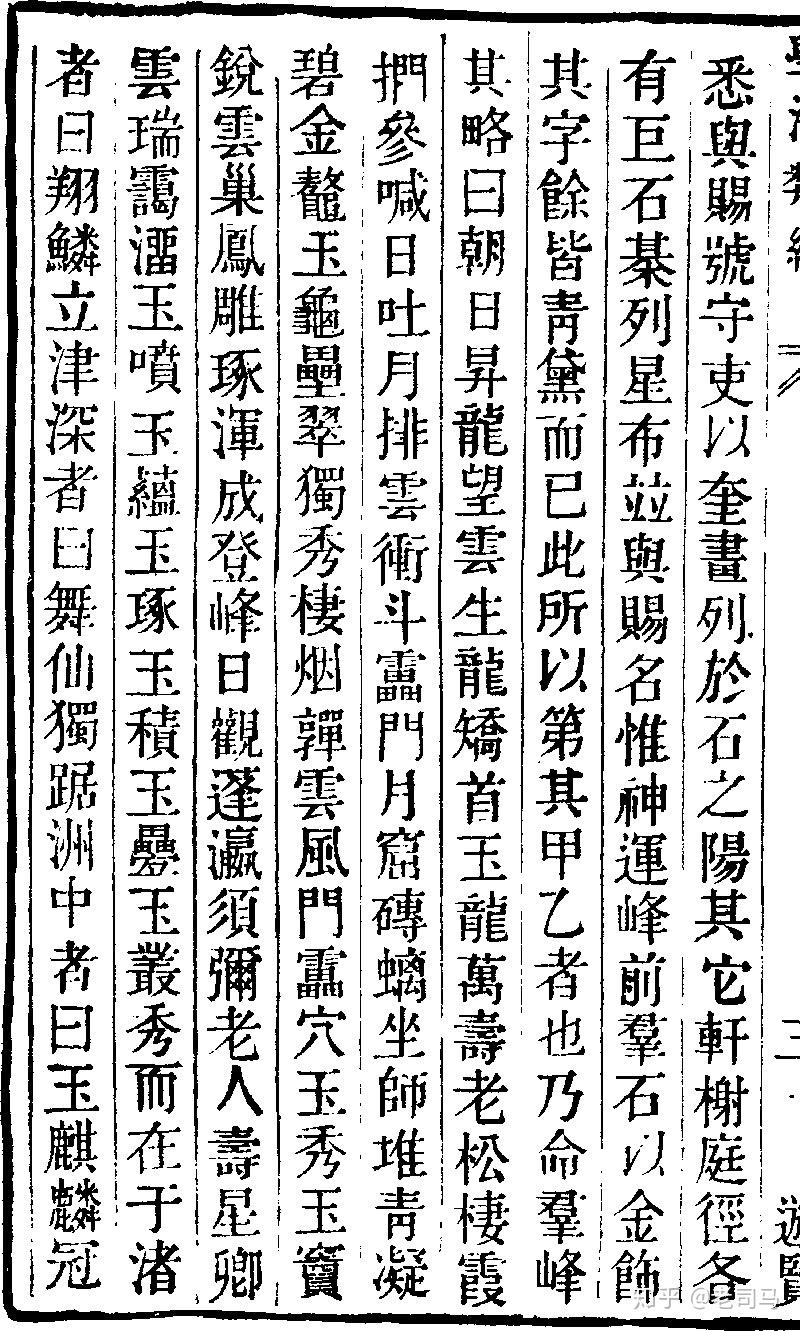 學海類編
三
遊覽
悉與賜號守吏以奎畫列於石之陽其它軒榭庭徑各
有巨石棊列星布並與賜名惟神運峰前羣石以金飾
其字餘皆靑黛而已此所以第其甲乙者也乃命羣峰
其略曰朝日昇龍望雲生龍矯首玉龍萬壽老松棲霞
捫參喊日吐月排雲衝斗靁門月窟磚螭坐師堆靑凝
碧金鼇玉龜壘翠獨秀棲烟嚲雲風門靁穴玉秀玉竇
銳雲巢鳳雕琢渾成登峰日觀蓬瀛須彌老人壽星卿
雲瑞靄溜玉噴玉蘊玉琢玉積玉疊玉叢秀而在于渚
者曰翔鱗立津深者曰舞仙獨踞洲中者曰玉麒麟冠
知乎 @老司马